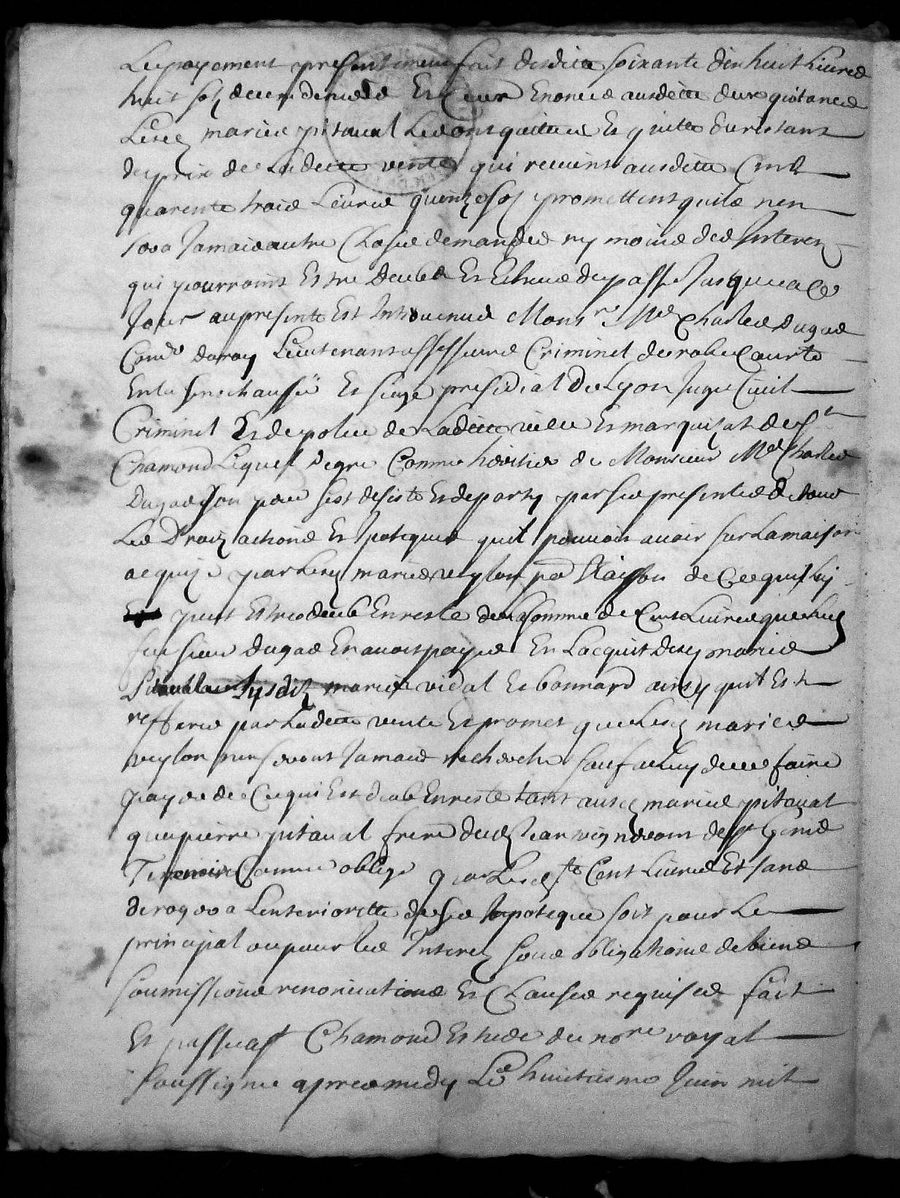 Le payement presentement fait desdites soixante dix huit Livres
huit solz deux deniers Et
mariés pitaval Les ont quittés Et quitte du restant
du prix de Ladette vente qui revient ausdittes Cent
quarente trois Livres quinze solz promettens quil ne n
sera Jamais autre Chose demandé ny moins des Interez
qui pourroint Estre deubs Et Echeus du passé Jusques a Ce
Jour au presente Est Intervenu Monsr. Me. Charles Dugas
Con.er du roy Lieutenant assesseur Criminel de robe Courte
En la senechaussé Et siege presidial De Lyon Juge Civil
Criminel Et de police de Ladette ville Et marquizat de St.
Chamond Lequel Comme heritier de Monsieur Me. Charles
Dugas son pere sest desisté Et departy par ses presentes de tous
Les Droiz actions Et Ipoteques quil pouvoit avoir sur La maison
acquize par Lesd. mariés veylon de Ce qui Luy
peut Estre deub En reste de La somme de Cent Livres que Led.
feu sieur dugas En avoit payée En Lacquit desd. mariés
mariés vidal Et bonnard ainsy quil Est
refferé par Ladette vente Et promet que Lesd. mariés
veylon nen seront Jamais recherchés sauf a Luy de se faire
payer de Ce qui Est deub En reste tant ausd. mariés pitaval
que pierre pitaval frere
Terrenoire Comme obligé Cent Livres Et sans
deroger a Lenteriorette de ses Ipoteque soit pour Le
principal ou pour les Interez sous obligations de biens
soumissions renonciations Et Clauses requises fait
Et passé a St. Chamond Estude du nore. royal
soussigné apres midy Le huitiesme Juin mil